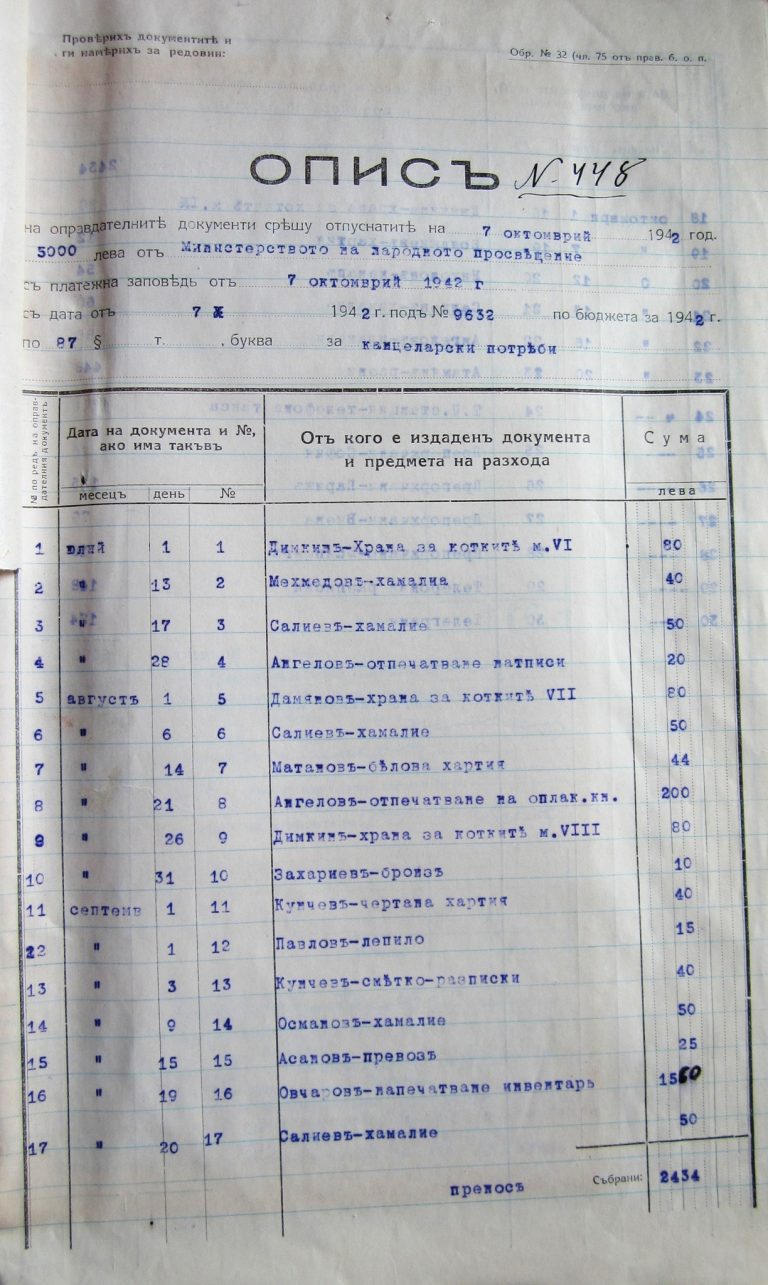 Провѣрихъ документитѣ и
ги намѣрихъ за редовни:
Обр. № 32 (чл. 75 отъ прав. б. о. п.
ОПИСЪ N. 448
на оправдателнитѣ документи срѣщу отпуснатитѣ на 7 октомврий 1942 год.
5000 лева отъ Министерството на народното просвѣщение
съ платежна заповѣдь отъ 7 октомврий 1942 г
съ дата отъ 7 X 1942 г. подъ № 9632 по бюджета за 1942 г.
по 87 § т. , буква за канцеларски потрѣби
№ по редъ на оправдателния документъ
Дата на документа и №, ако има такъвъ
месецъ день №
Отъ кого е издаденъ документа и предмета на разхода
Сума
лева
1 юлий 1 1 Димкинъ-Храна за коткитѣ м.VI 80
2 " 13 2 Мехмедовъ-хамалиа 40
3 " 17 3 Салиевъ-хамалие 50
4 " 28 4 Ангеловъ-отпечатване натписи 20
5 августъ 1 5 Дамяновъ-храна за коткитѣ VII 80
6 " 6 6 Салиевъ-хамалие 50
7 " 14 7 Матановъ-бѣлова хартия 44
8 " 21 8 Ангеловъ-отпечатване на оплак.кн. 200
9 " 26 9 Димкинъ-храна за коткитѣ м.VIII 80
10 " 31 10 Захариевъ-бронзъ 10
11 септемв 1 11 Кунчевъ-чертана хартия 40
22 " 1 12 Павловъ-лепило 15
13 " 3 13 Кунчевъ-смѣтко-разписки 40
14 " 9 14 Османовъ-хамалие 50
15 " 15 15 Асановъ-превозъ 25
16 " 19 16 Овчаровъ-напечатване инвентарь 1560
17 " 20 17 Салиевъ-хамалие 50
преносъ Събрани: 2434